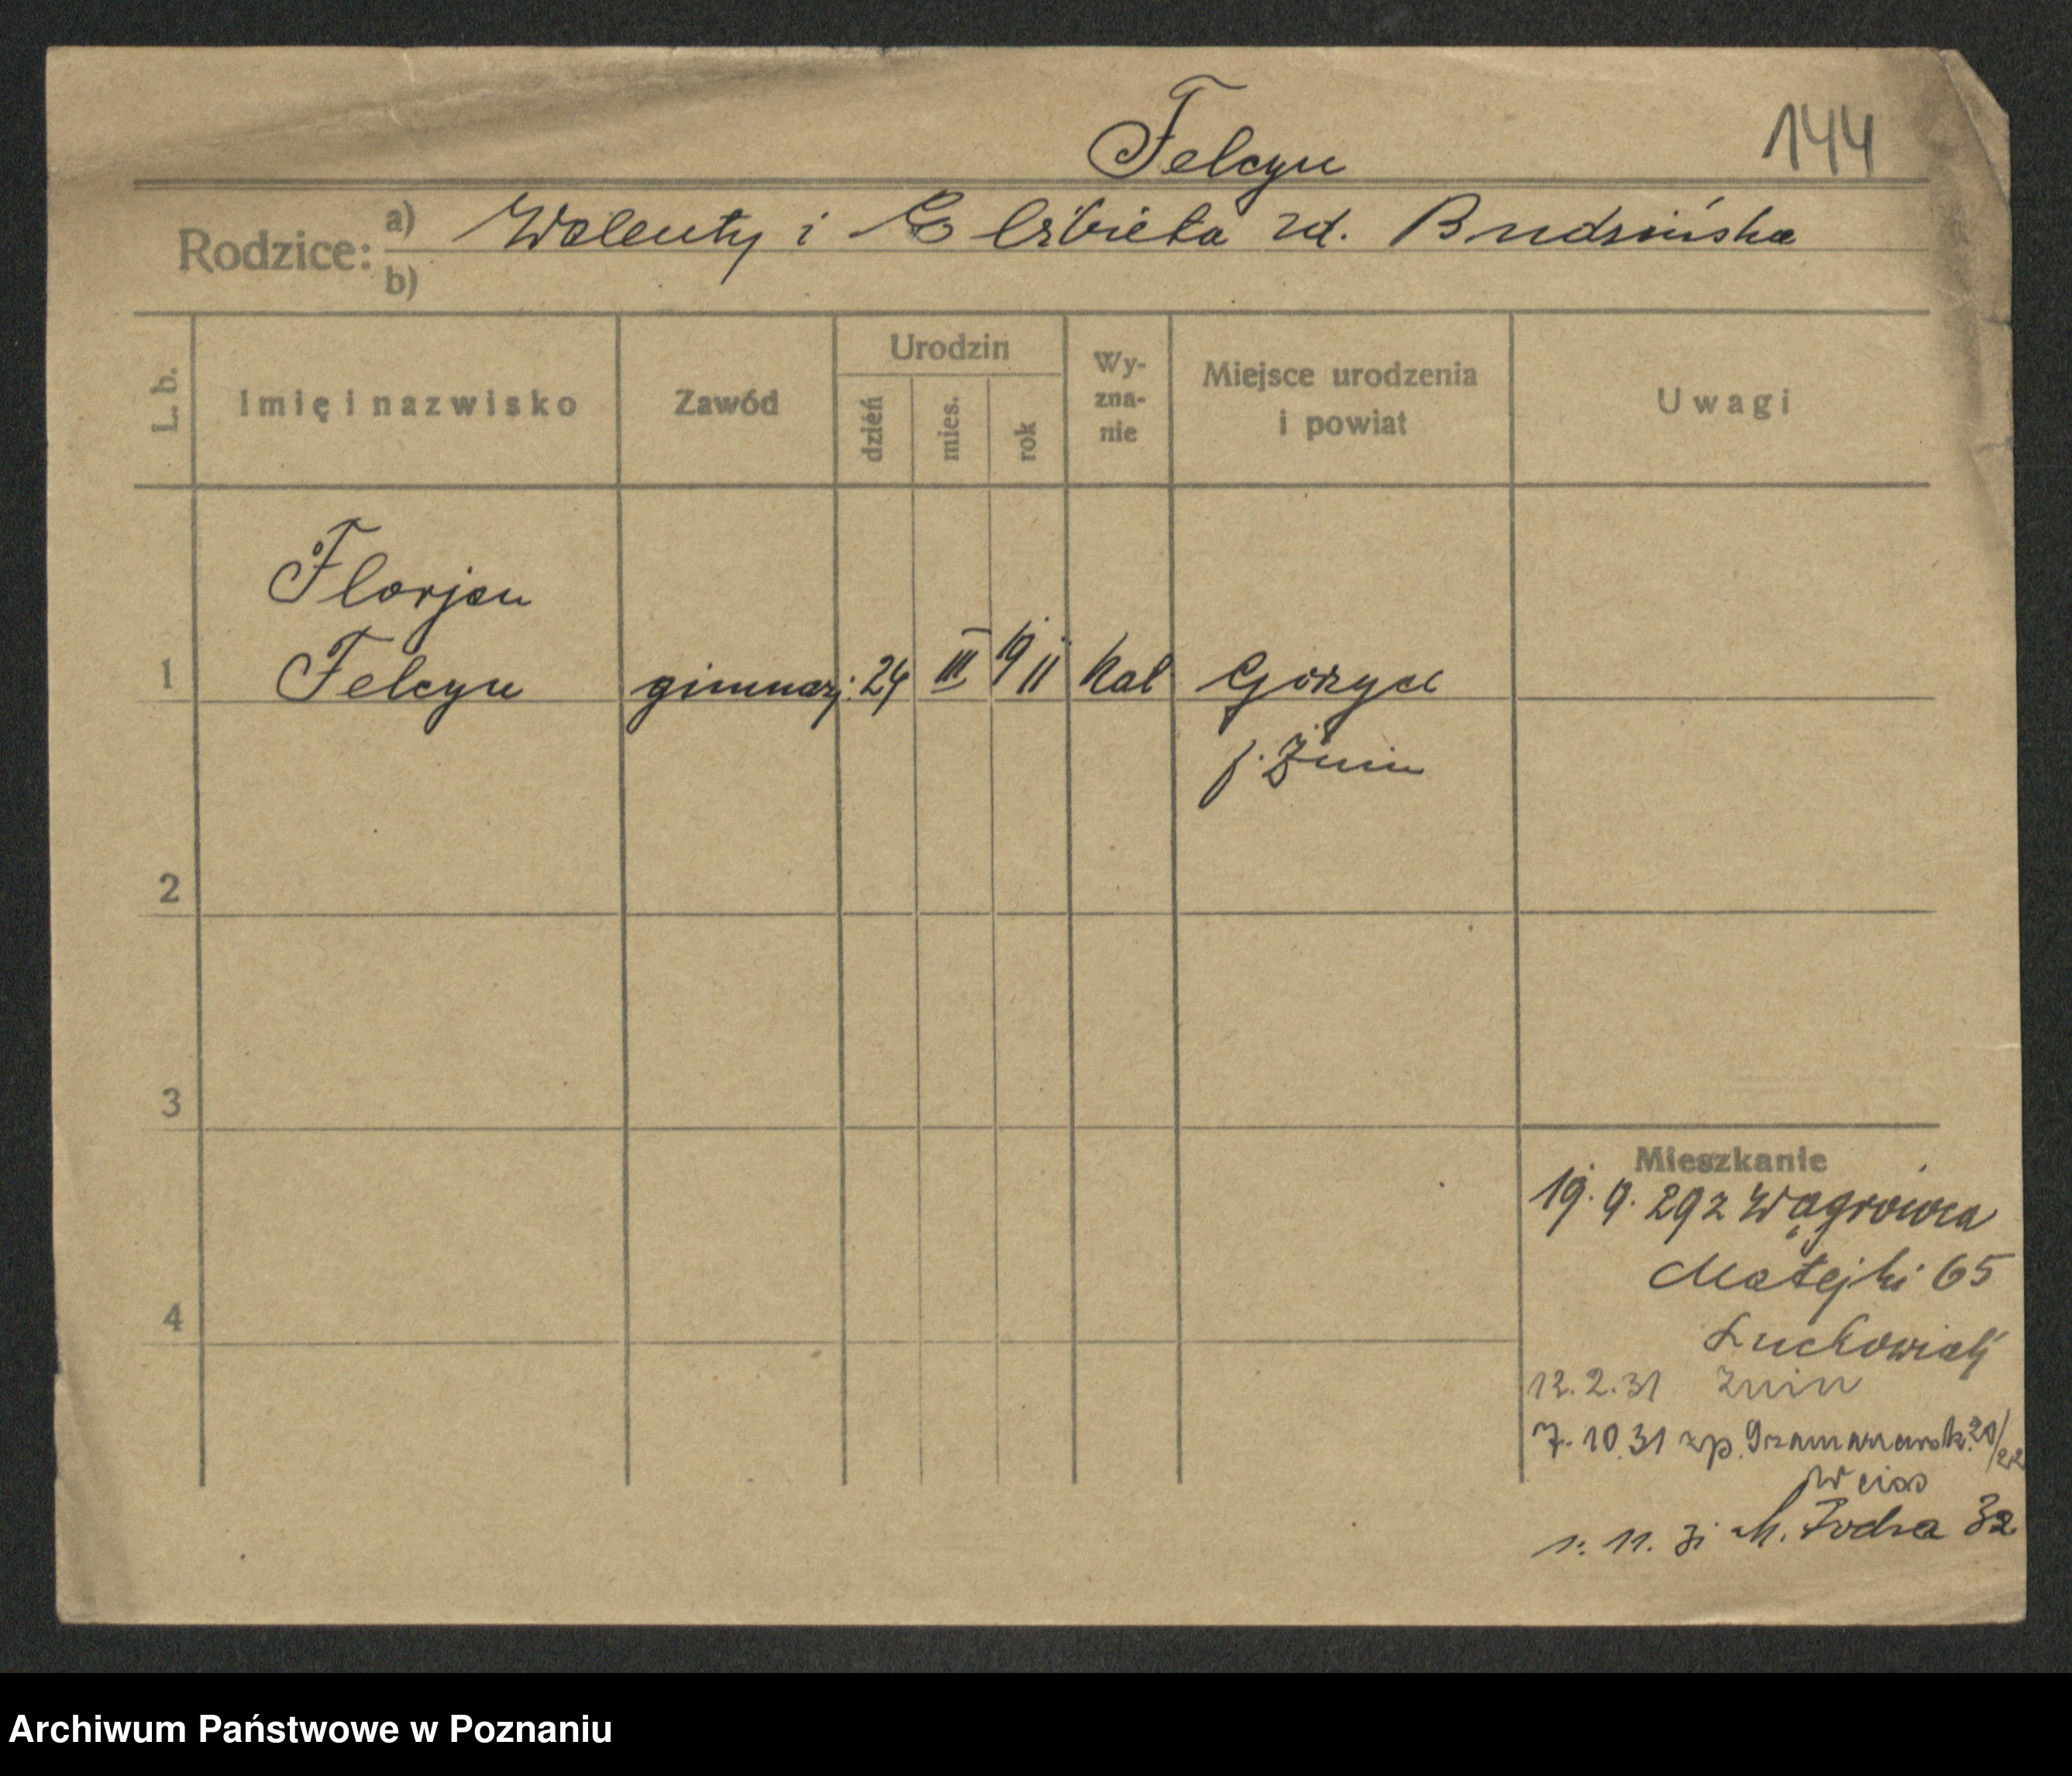 144
Felcyn
Rodzice: a) Walenty i Elżbieta zd. Budzińska
b)
L. b.
Imię i nazwisko
Zawód
Urodzin
dzień
mies.
rok
Wy-
zna-
nie
Miejsce urodzenia
i powiat
Uwagi
Florjan
1 Felcyn gimnazj. 24 III 1911 kat Gorzyce
p. Żnin
2
3
4
Mieszkanie
19. 9. 29 z Wągrówca
Matejki 65
12.2.31 Żnin
7. 10.31 20/22
Weiss
1. 11. 31 32
Archiwum Państwowe w Poznaniu